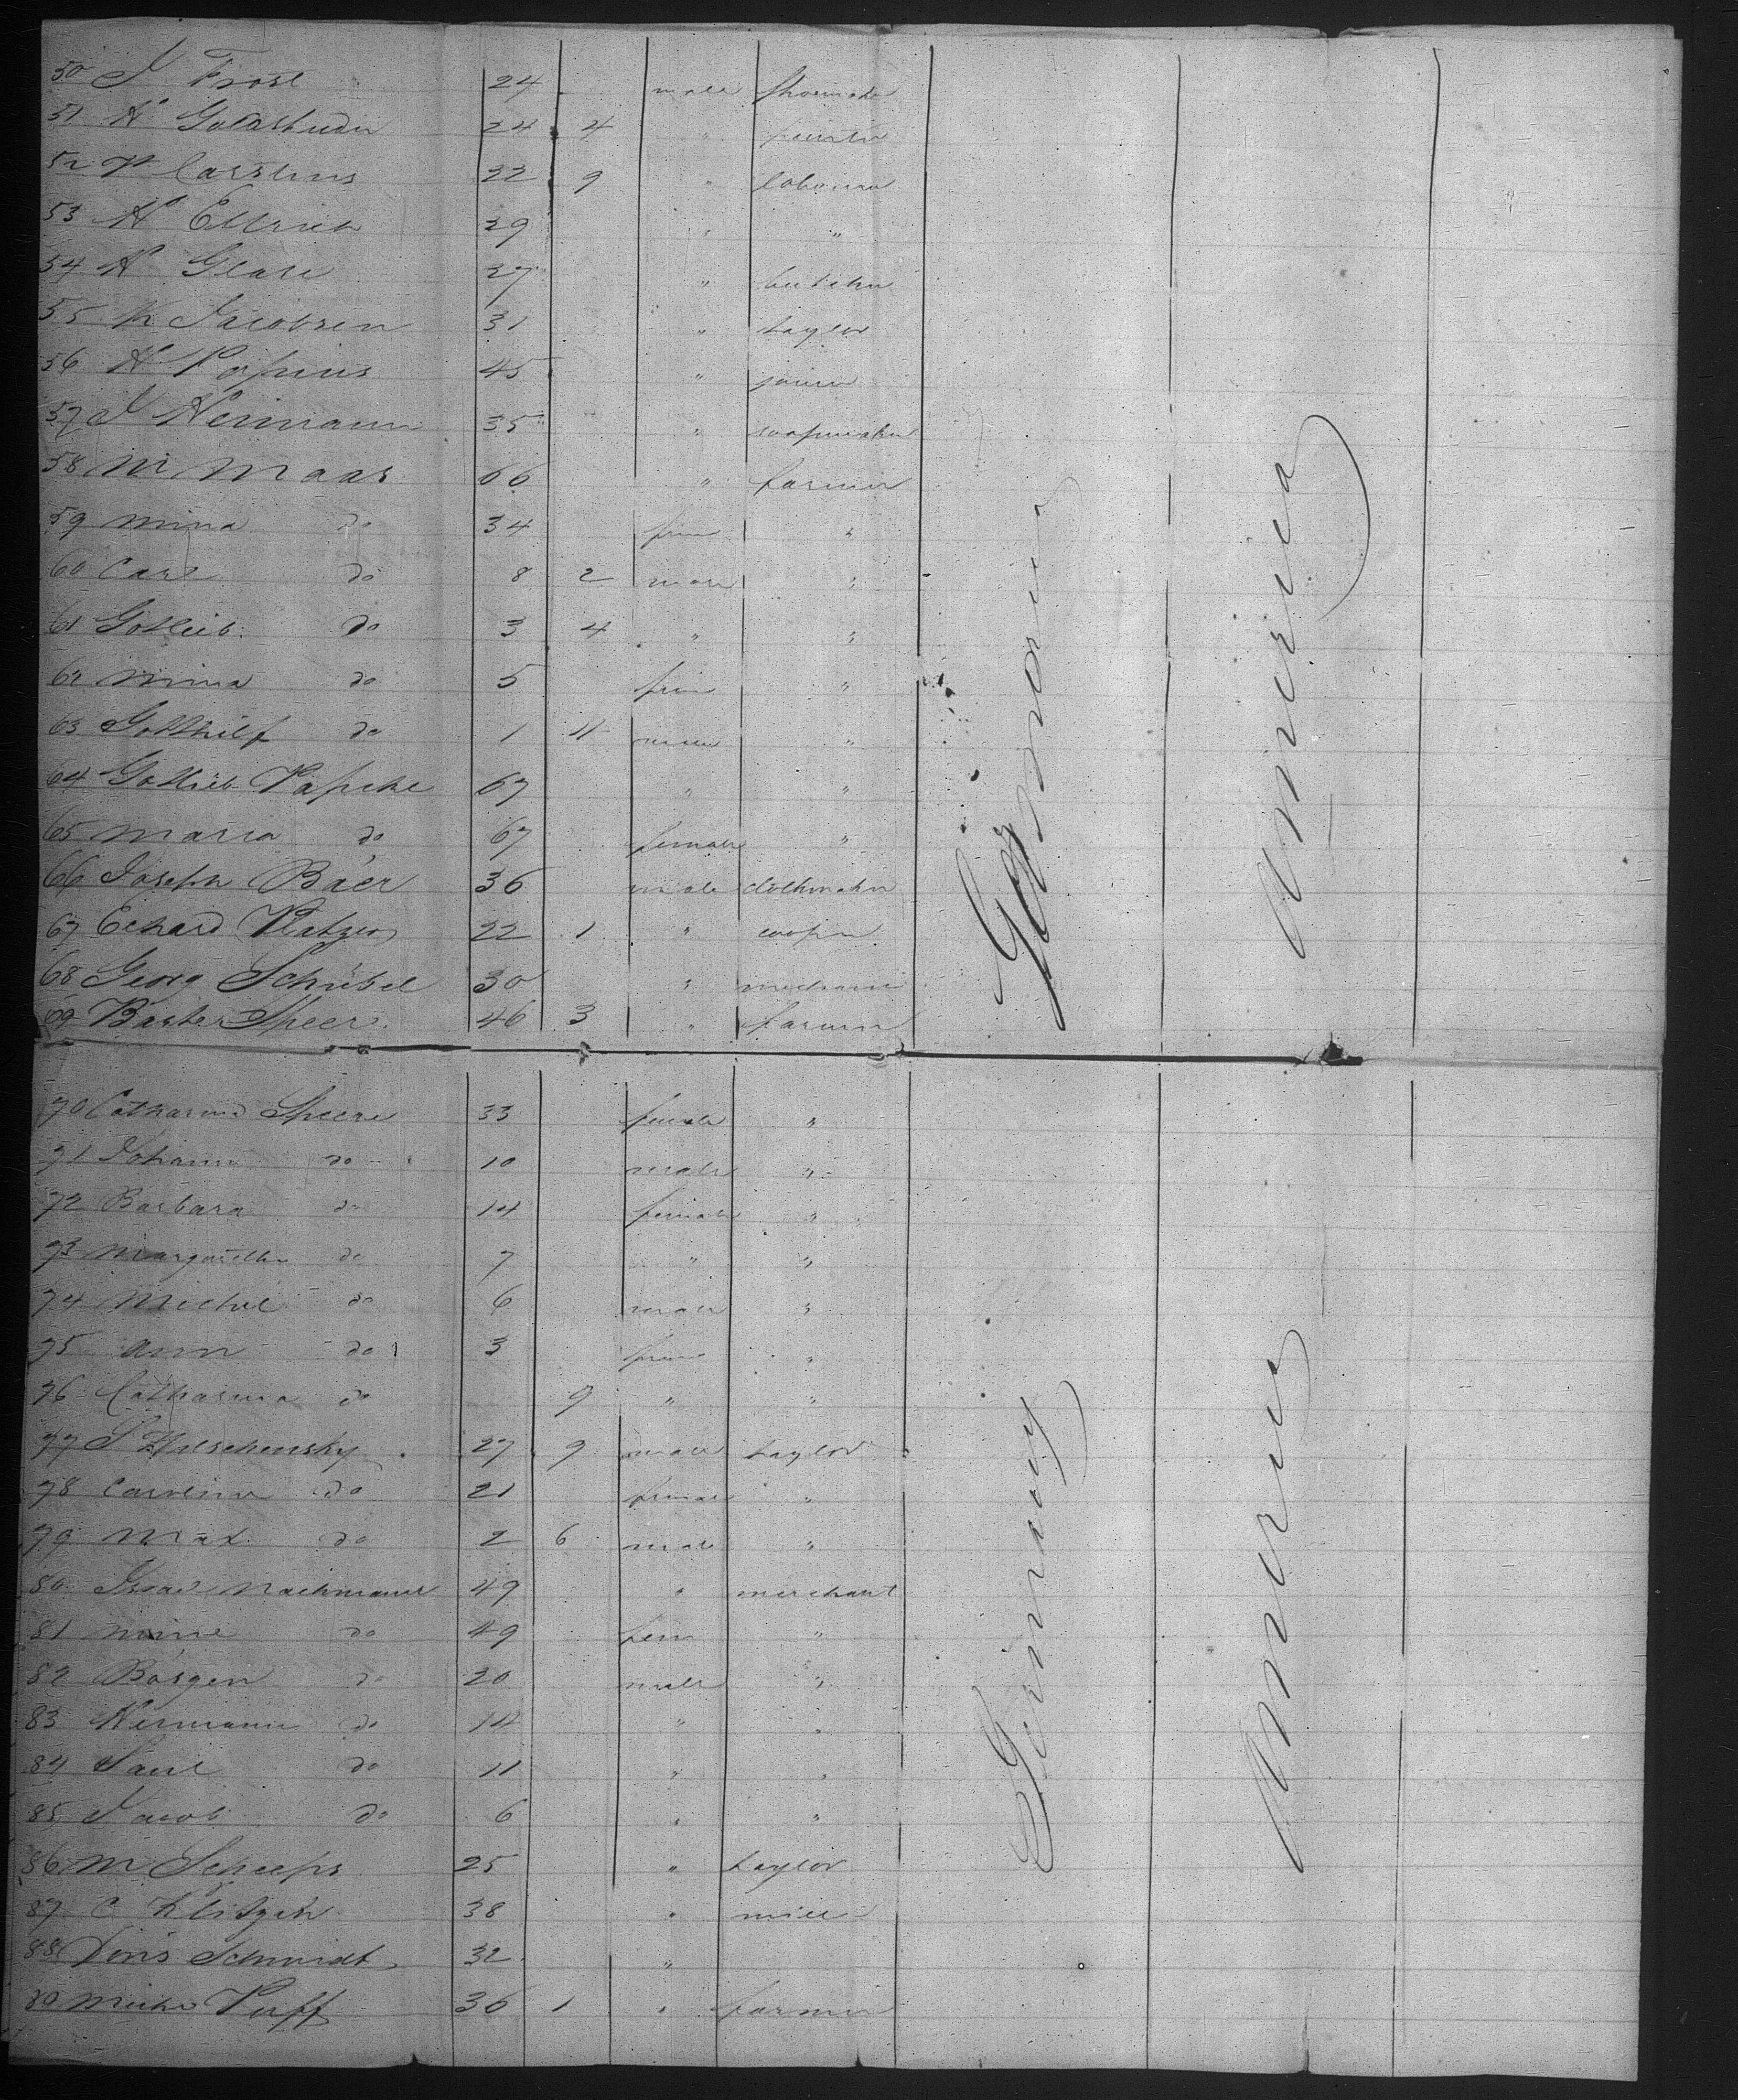 50 J Frost 24 male shoemaker
51 H 24 4 " painter
52 Carstens 22 9 " labourer
53 H Ellrich 29 " "
54 H Glase 27 " butcher
55 H Jacobsen 31 " taylor
56 H 45 " joiner
57 J Heimann 35 " soapmaker
58 W Maas 66 " farmer
59 Mina do 34 fem "
60 Carl do 8 2 male "
61 Gotlieb do 3 4 " "
62 Mina do 5 fem "
63 Gotthilf do 1 11 male "
64 Gottlieb Papcke 67 " "
65 Maria do 67 female "
66 Joseph Baer 36 male clothmaker
67 Echard 22 1 " cooper
68 Georg Schübel 30 "
69 Speer 46 3 " farmer
Germany
America
70 Catharina Speere 33 female "
71 Johann do 10 male "
72 Barbara do 14 female "
73 Margaretha do 7 " "
74 Michel do 6 male "
75 Ann do 3 fem "
76 Catharina do 9 " "
77 S 27 9 male taylor
78 do 21 female "
79 Max do 2 6 male "
80 Israel Nachmann 49 " merchant
81 Mine do 49 fem "
82 do 20 male "
83 Hermann do 14 " "
84 Saul do 11 " "
85 Jacob do 6 " "
86 M Scheeps 25 " taylor
87 C Klitzeh 38 "
88 Doris Schmidt 32 "
89 Puff 36 1 " farmer
Germany
America